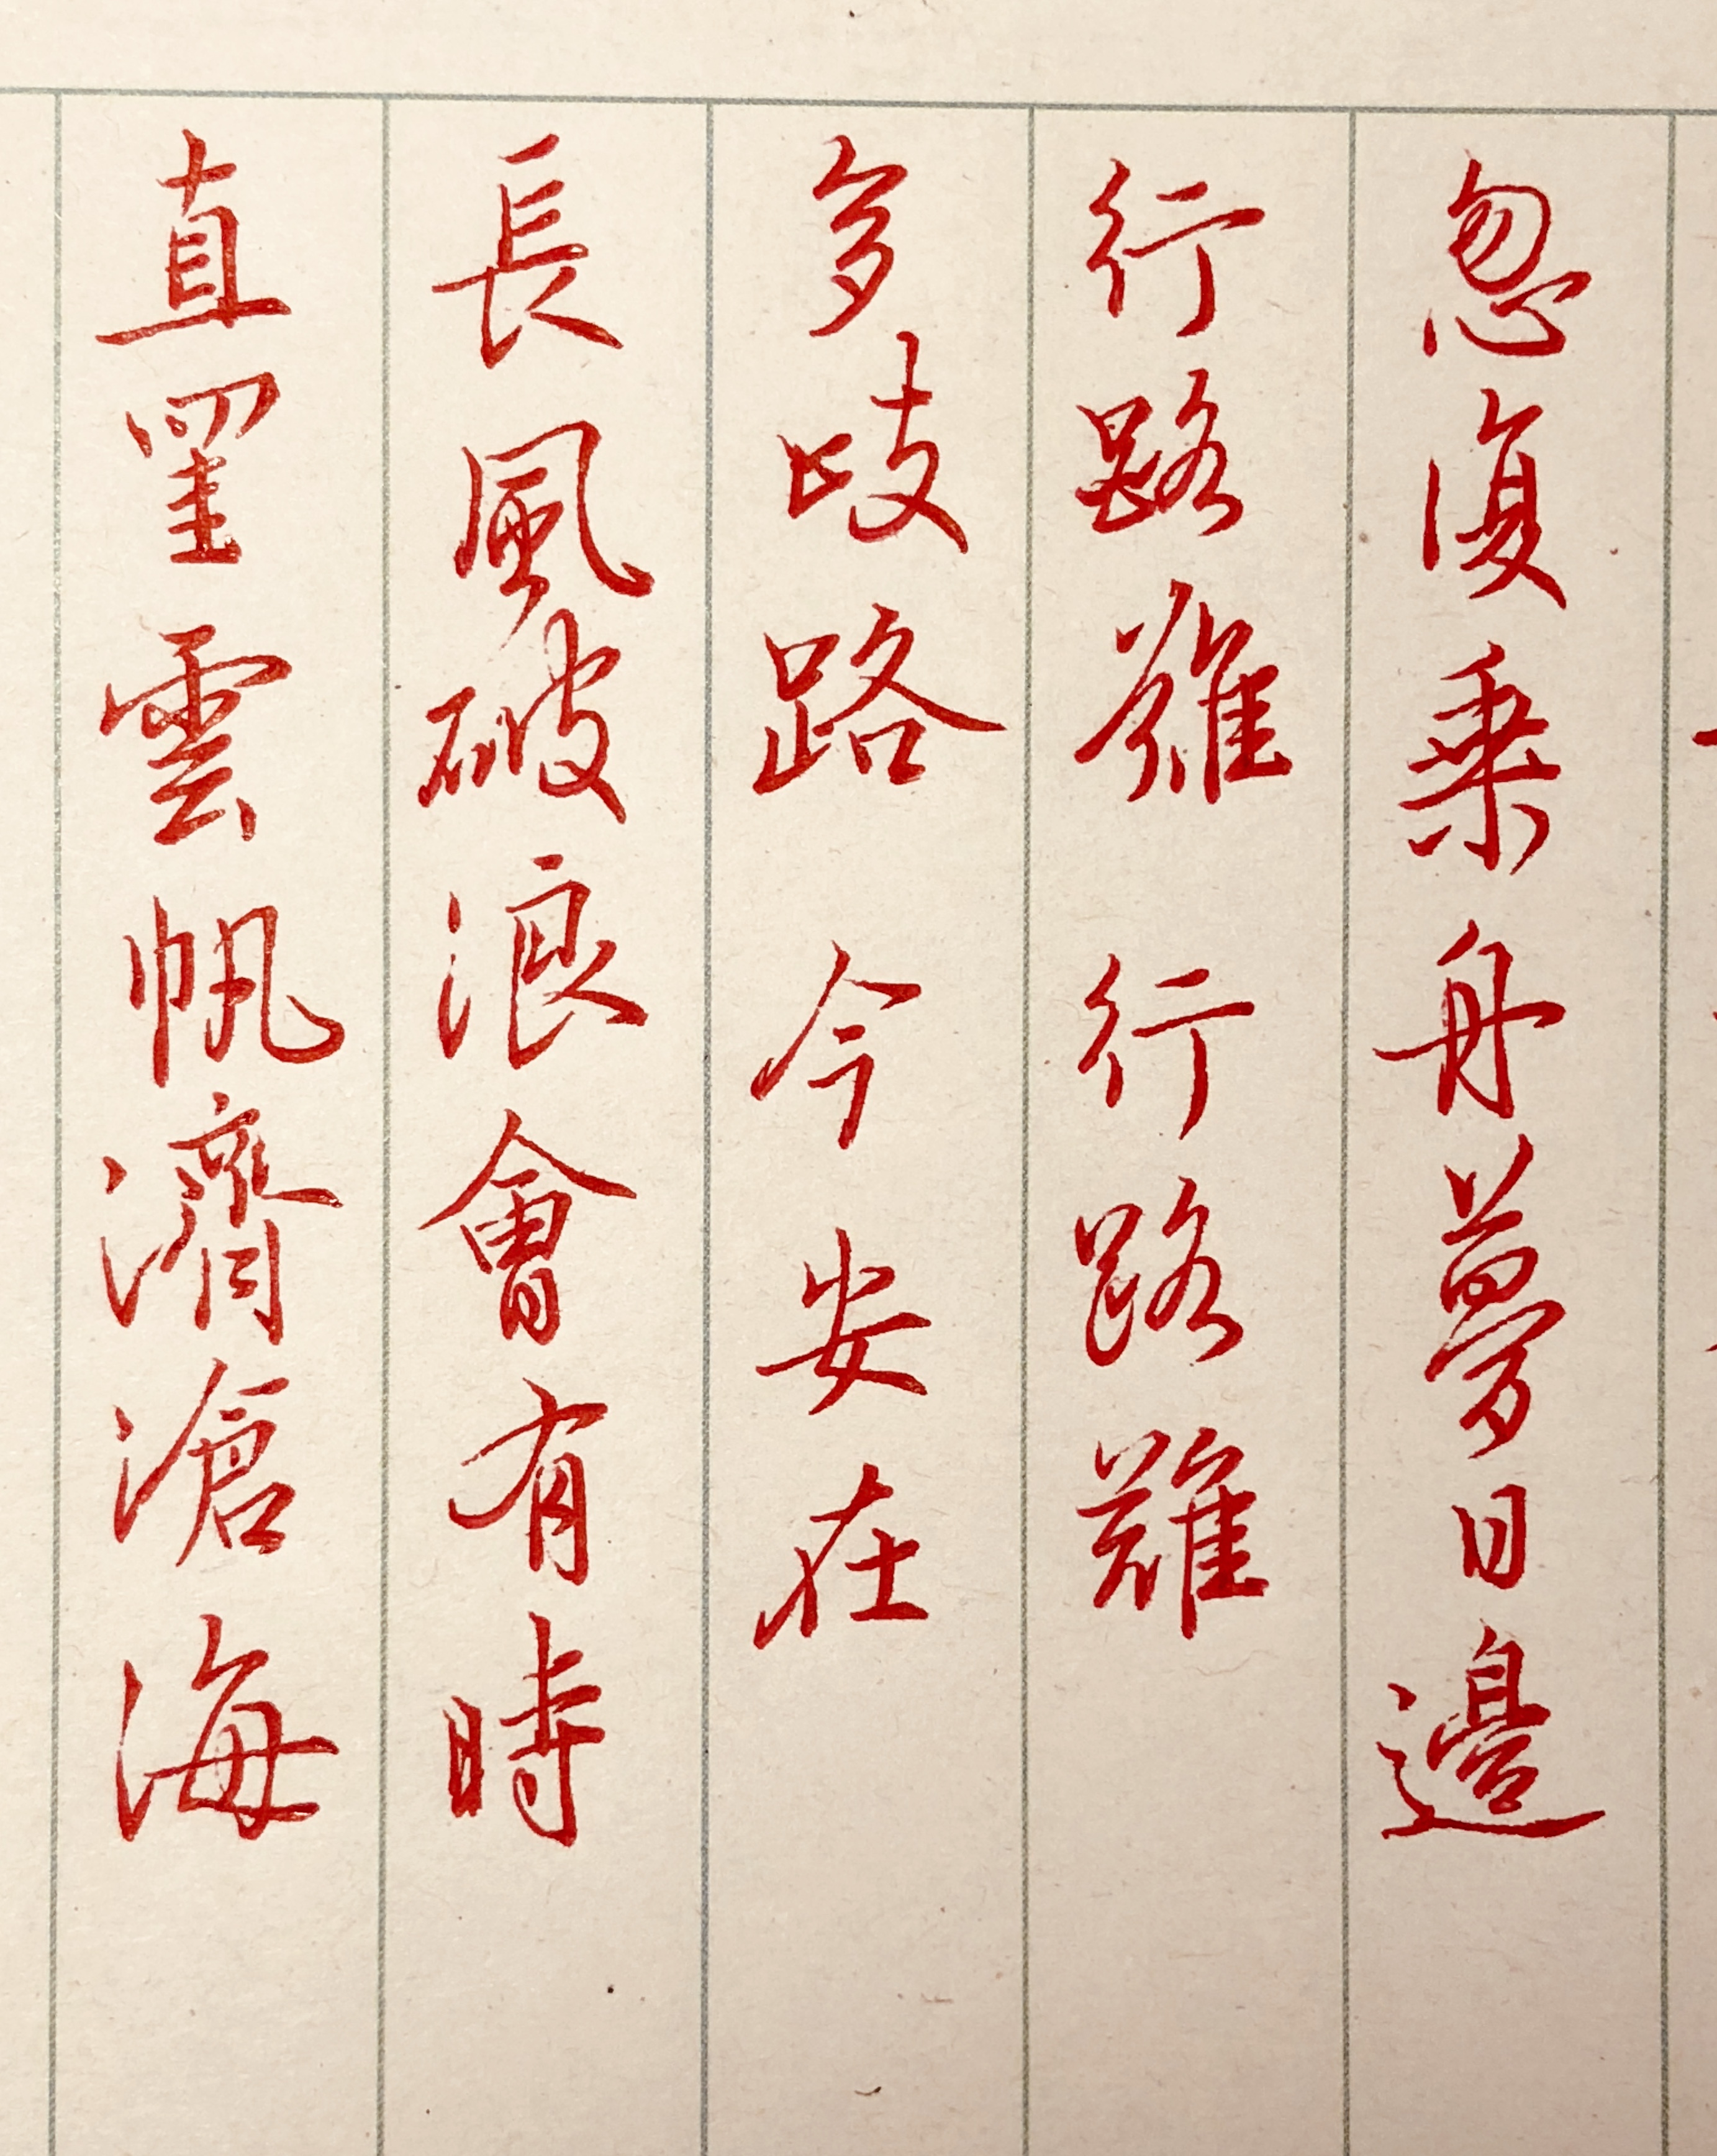 忽復乘舟夢日邊
行路難行路難
多歧路今安在
長風破浪會有時
直罣雲帆濟滄海